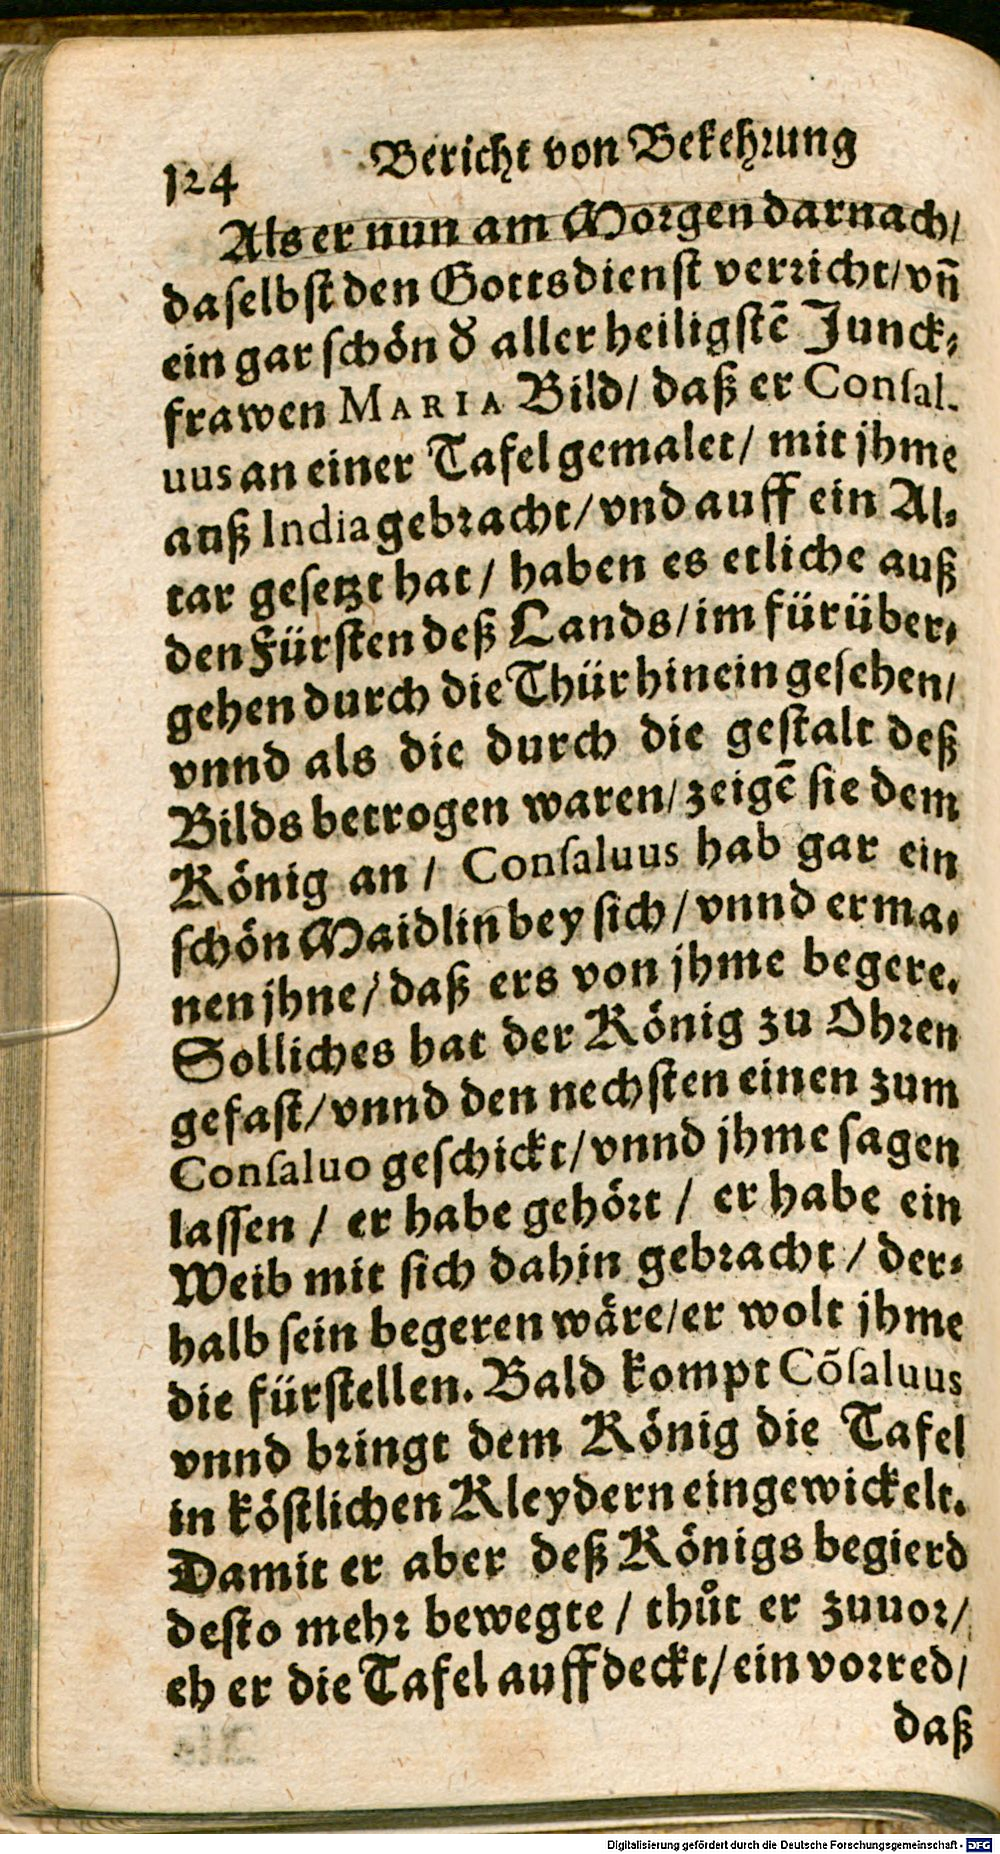 124 Bericht von Bekehrung
Als er nun am Morgen darnach/
daselbst den Gottsdienst verricht/ vñ
ein gar schön d' aller heiligstē Junck-
frawen MARIA Bild/ daß er Consal-
uus an einer Tafel gemalet/ mit jhme
auß India gebracht/ vnd auff ein Al-
tar gesetzt hat/ haben es etliche auß
den Fürsten deß Lands/ im fürüber-
gehen durch die Thür hinein gesehen/
vnnd als die durch die gestalt deß
Bilds betrogen waren/ zeigē sie dem
König an/ Consaluus hab gar ein
schön Maidlin bey sich/ vnnd erma-
nen jhne/ daß ers von jhme begere.
Solliches hat der König zu Ohren
gefast/ vnnd den nechsten einen zum
Consaluo geschickt/ vnnd jhme sagen
lassen/ er habe gehört/ er habe ein
Weib mit sich dahin gebracht/ der-
halb sein begeren wäre/ er wolt jhme
die fürstellen. Bald kompt Cõsaluus
vnnd bringt dem König die Tafel
in köstlichen Kleydern eingewickelt.
Damit er aber deß Königs begierd
desto mehr bewegte/ thůt er zuuor/
eh er die Tafel auffdeckt/ ein vorred/
daß
Digitalisierung gefördert durch die Deutsche Forschungsgemeinschaft - DFG